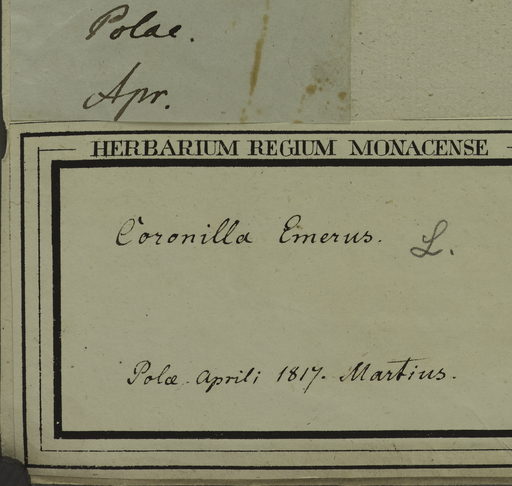 Polae.
Apr.
HERBARIUM REGIUM MONACENSE
Coronilla Emerus. L.
Polæ. Aprili 1817. Martius.